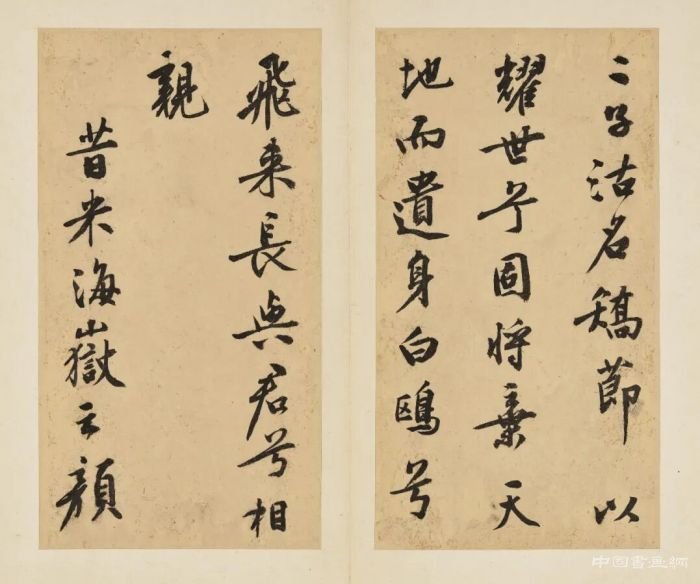 二子沽名矯節以
耀世兮固將棄天
地而遺身白鷗兮
飛来長與君兮相
親
昔米海嶽云顏
中国書画網